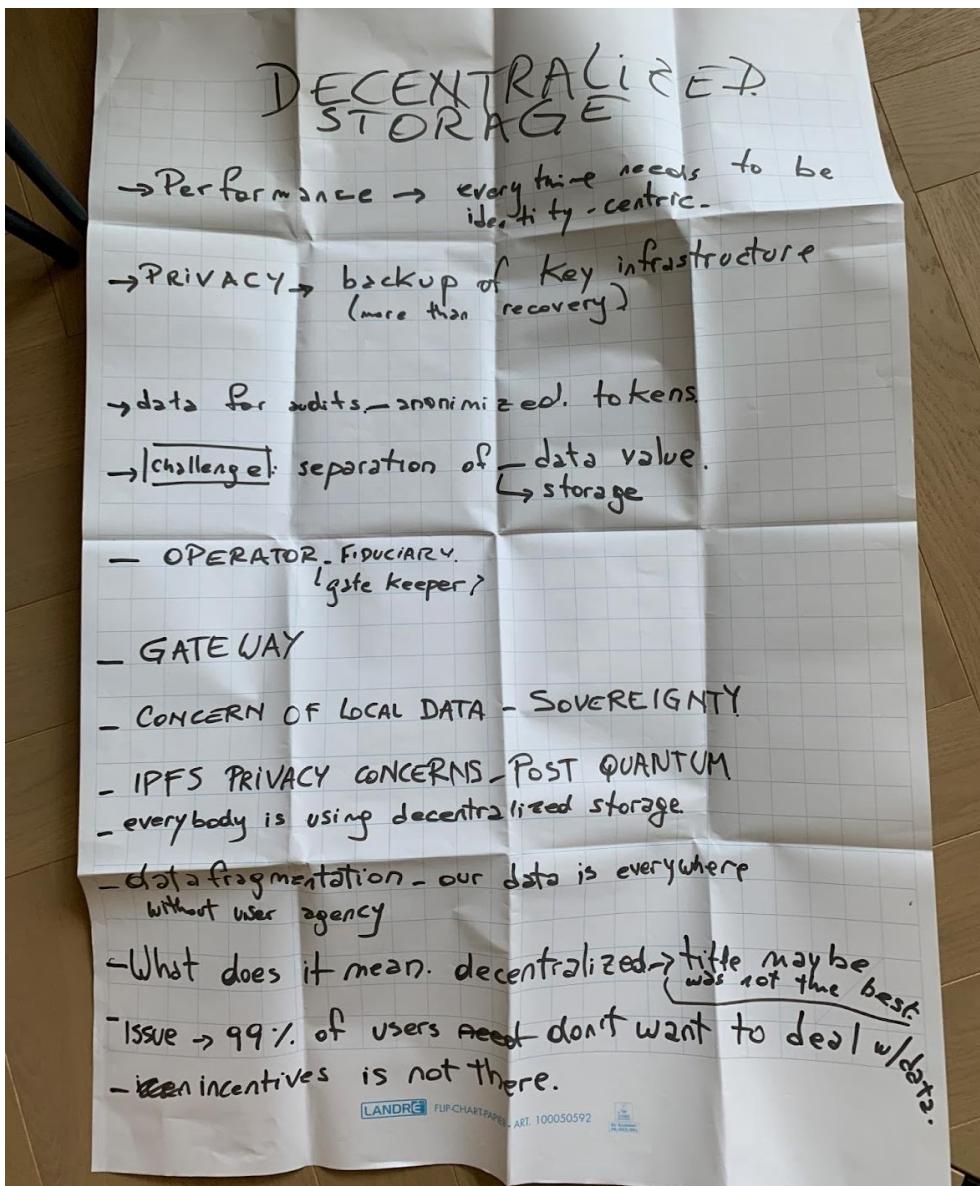 DECENTRALiZED
STORAGE
→ Performance → every thing needs to be
identity-centric.
→ PRiVACY → backup of key infrastructure
(more than recovery)
→ data for audits - anonimized. tokens
→ challenge: separation of - data value.
↳ storage
- OPERATOR - FIDUCIARY.
(gate keeper)
- GATEWAY
- CONCERN OF LOCAL DATA - SOVEREIGNTY
- IPFS PRIVACY CONCERNS - POST QUANTUM
- everybody is using decentralized storage.
- data fragmentation - our data is everywhere
without user agency
- What does it mean. decentralized → title maybe
was not the best.
- Issue → 99% of users need don't want to deal w/data.
- incentives is not there.
LANDRÉ FLIP-CHART-PAPIER - ART. 100050592